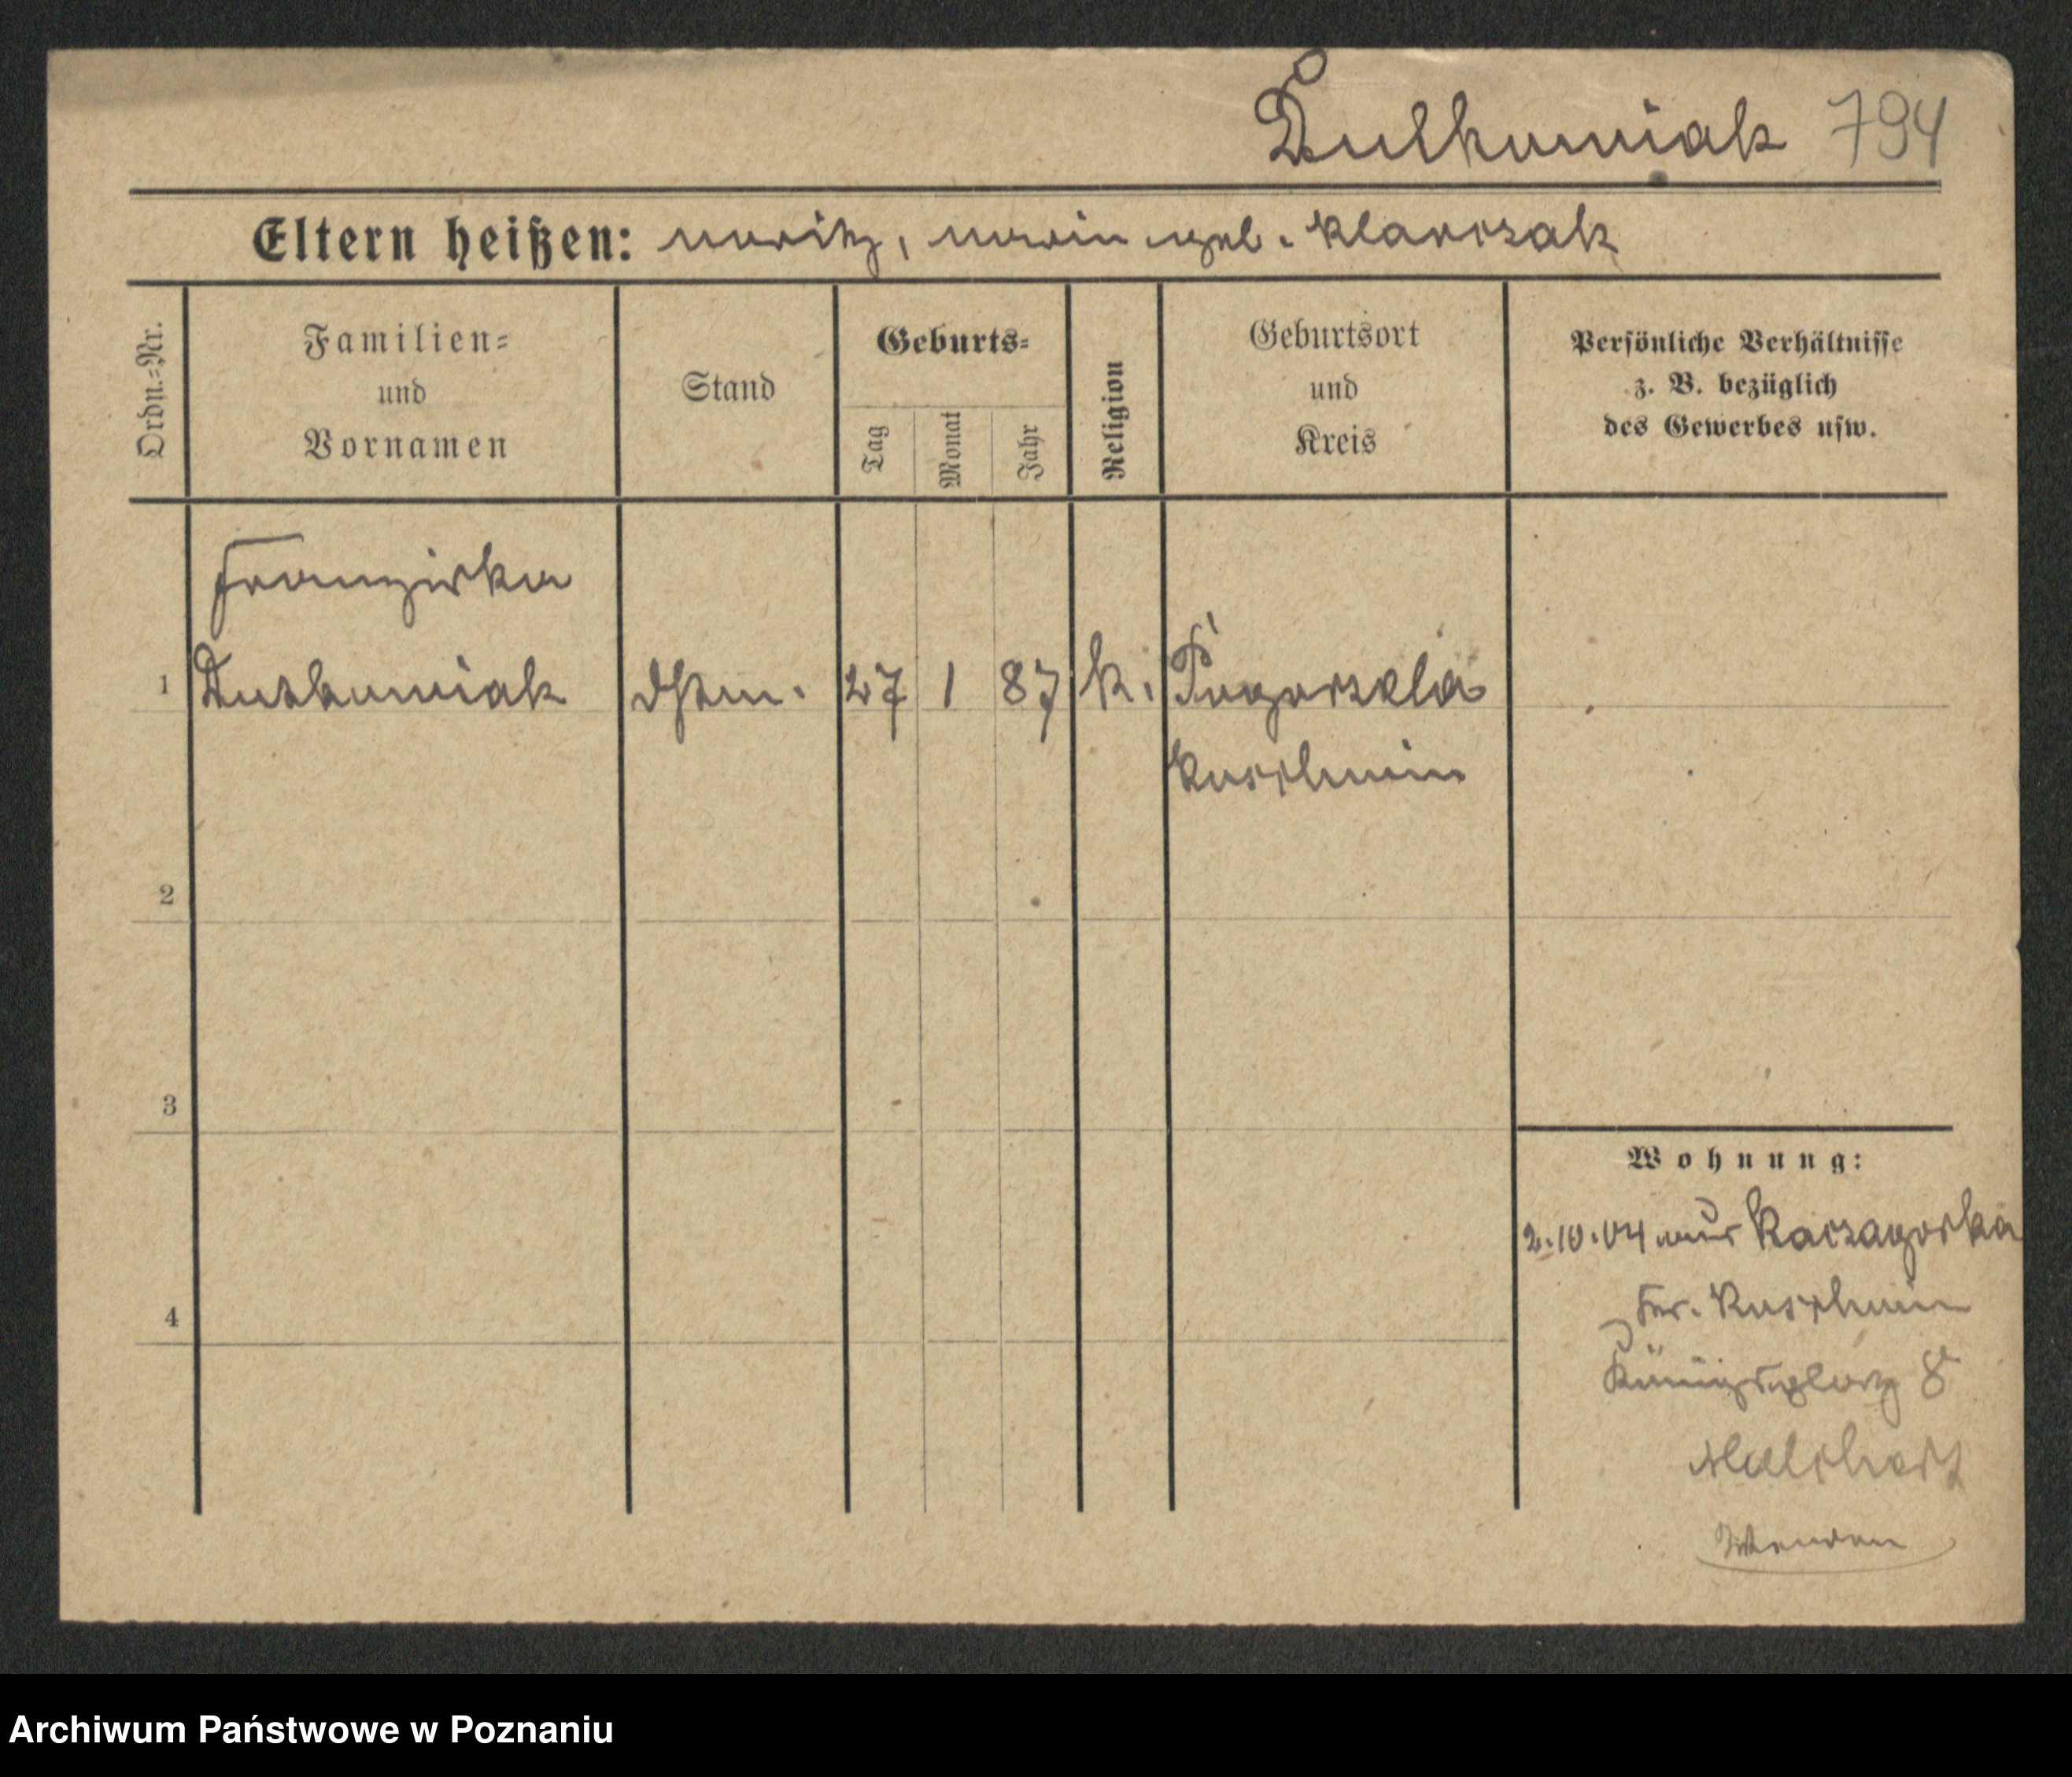 Dutkowiak 794
Eltern heißen: Moritz, Maria geb. Klarczak
Ordn.-Nr.
Familien- und Vornamen
Stand
Geburts-
Tag
Monat
Jahr
Religion
Geburtsort und Kreis
Persönliche Verhältnisse
z. B. bezüglich
des Gewerbes usw.
Franziska
1 Dutkowiak Dstm. 27 1 87 k. Pogorzela
Koschmin
2
3
4
Wohnung:
2.10.04 aus Kaczagorka
Kr. Koschmin
Königsplatz 8
Wenden
Archiwum Państwowe w Poznaniu